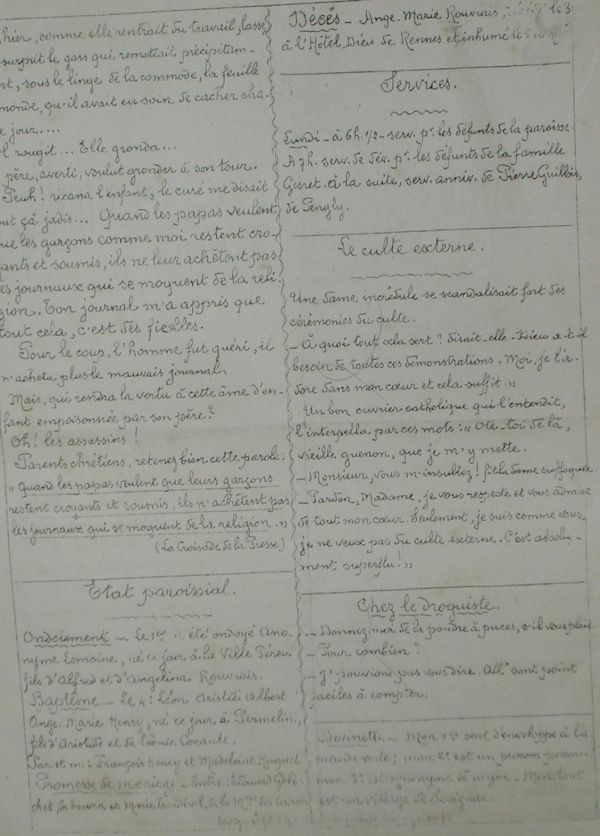 hier, comme elle rentrait du travail, lasse
surprit le gars qui remettait précipitam-
nt, sous le linge de la commode, la feuille
monde, qu'il avait eu soin de cacher cha-
e jour....
l rougit... Elle gronda...
père, averti, voulut gronder à son tour.
Peuh! ricana l'enfant, le curé me disait
out çà jadis... Quand les papas veulent
que les garçons comme moi restent cro-
yants et soumis, ils ne leur achètent pas
es journaux qui se moquent de la reli-
gion. Ton journal m'a appris que
tout cela, c'est des ficelles.
Pour le coup, l'homme fut guéri, il
n'acheta plus le mauvais journal.
Mais, qui rendra la vertu à cette âme d'en-
fant empoisonnée par son père?
Oh! les assassins!
Parents chrétiens, retenez bien cette parole:
"Quand les papas veulent que leurs garçons
restent croyants et soumis, ils n'achètent pas
les journaux qui se moquent de la religion."
(La Croisade de la Presse)
Etat paroissial.
Ondoiement - Le 1er : été ondoyé Ano-
nyme Lemoine, né ce jour à la Ville
fils d'Alfred et d'Angelina Rouvrais.
Baptême - Le 4: Léon Aristide Albert
Ange-Marie Henry, né ce jour à Permelin,
fils d'Aristide et de Léonie
Par. et m.: François Henry et Madeleine Huguet.
Promesse de mariage - Entre: Edouard
et Marie de la
Décès - Ange-Marie Rouvrais, le 3
à l'Hôtel-Dieu de Rennes et inhumé le 5
Services.
Lundi - à 6h.1/2 - serv. pr. les défunts de la paroisse
A 7h. serv. de dév. pr. les défunts de la famille
Gesret - à la suite, serv. anniv. de Pierre
de Penguily.
Le culte externe.
Une dame incrédule se scandalisait fort des
cérémonies du culte.
- À quoi tout cela sert? disait-elle. Dieu a-t-il
besoin de toutes ces démonstrations. Moi, je l'a-
dore dans mon cœur et cela suffit."
Un bon ouvrier catholique qui l'entendit,
l'interpella par ces mots: "Ote-toi de là,
vieille guenon, que je m'y mette.
- Monsieur, vous m'insultez! fit la dame suffoquée
- Pardon, Madame, je vous respecte et vous admire
de tout mon cœur. Seulement, je suis comme vous,
je ne veux pas du culte externe. C'est absolu-
ment superflu!"
Chez le droguiste.
- Donnez-moi de la poudre à puces, s'il vous plaît.
- Pour combien?
- J'pouvions pas vous dire. All' sont point
faciles à compter.
Devinette - Mon 1er sert d'enveloppe à l'a-
mande verte; mon 2e est un pronom personnel
mon 3e est synonyme de - Mon tout
est un village de